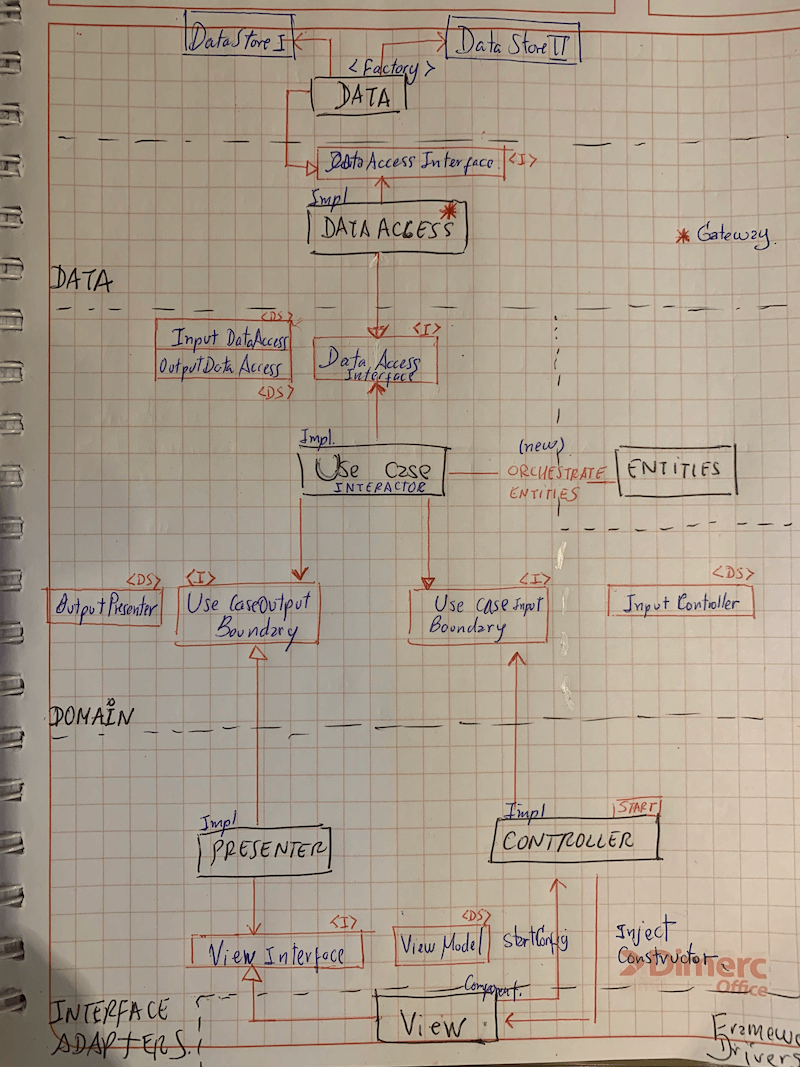 DataStore I
Data Store II
<Factory>
DATA
DataAccess Interface <I>
Impl
DATA ACCESS *
* Gateway.
DATA
<DS>
Input DataAccess
OutputData Access
<DS>
<I>
Data Access
Interface
Impl.
Use Case
INTERACTOR
(new)
ORCHESTRATE
ENTITIES
ENTITIES
<DS>
OutputPresenter
<I>
Use CaseOutput
Boundary
<I>
Use Case Input
Boundary
<DS>
Input Controller
DOMAIN
Impl
PRESENTER
Impl
START
CONTROLLER
<I>
View Interface
<DS>
View Model
StartConfig
Inject
Constructor
Dimerc
Office
Component.
View
INTERFACE
ADAPTERS.
Framew
Drivers